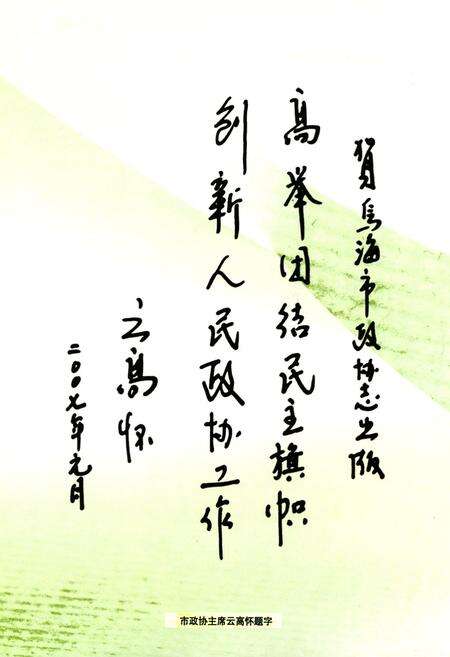 贺乌海市政协志出版
高举团结民主旗帜
创新人民政协工作
云高怀
二〇〇七年元月
市政协主席云高怀题字